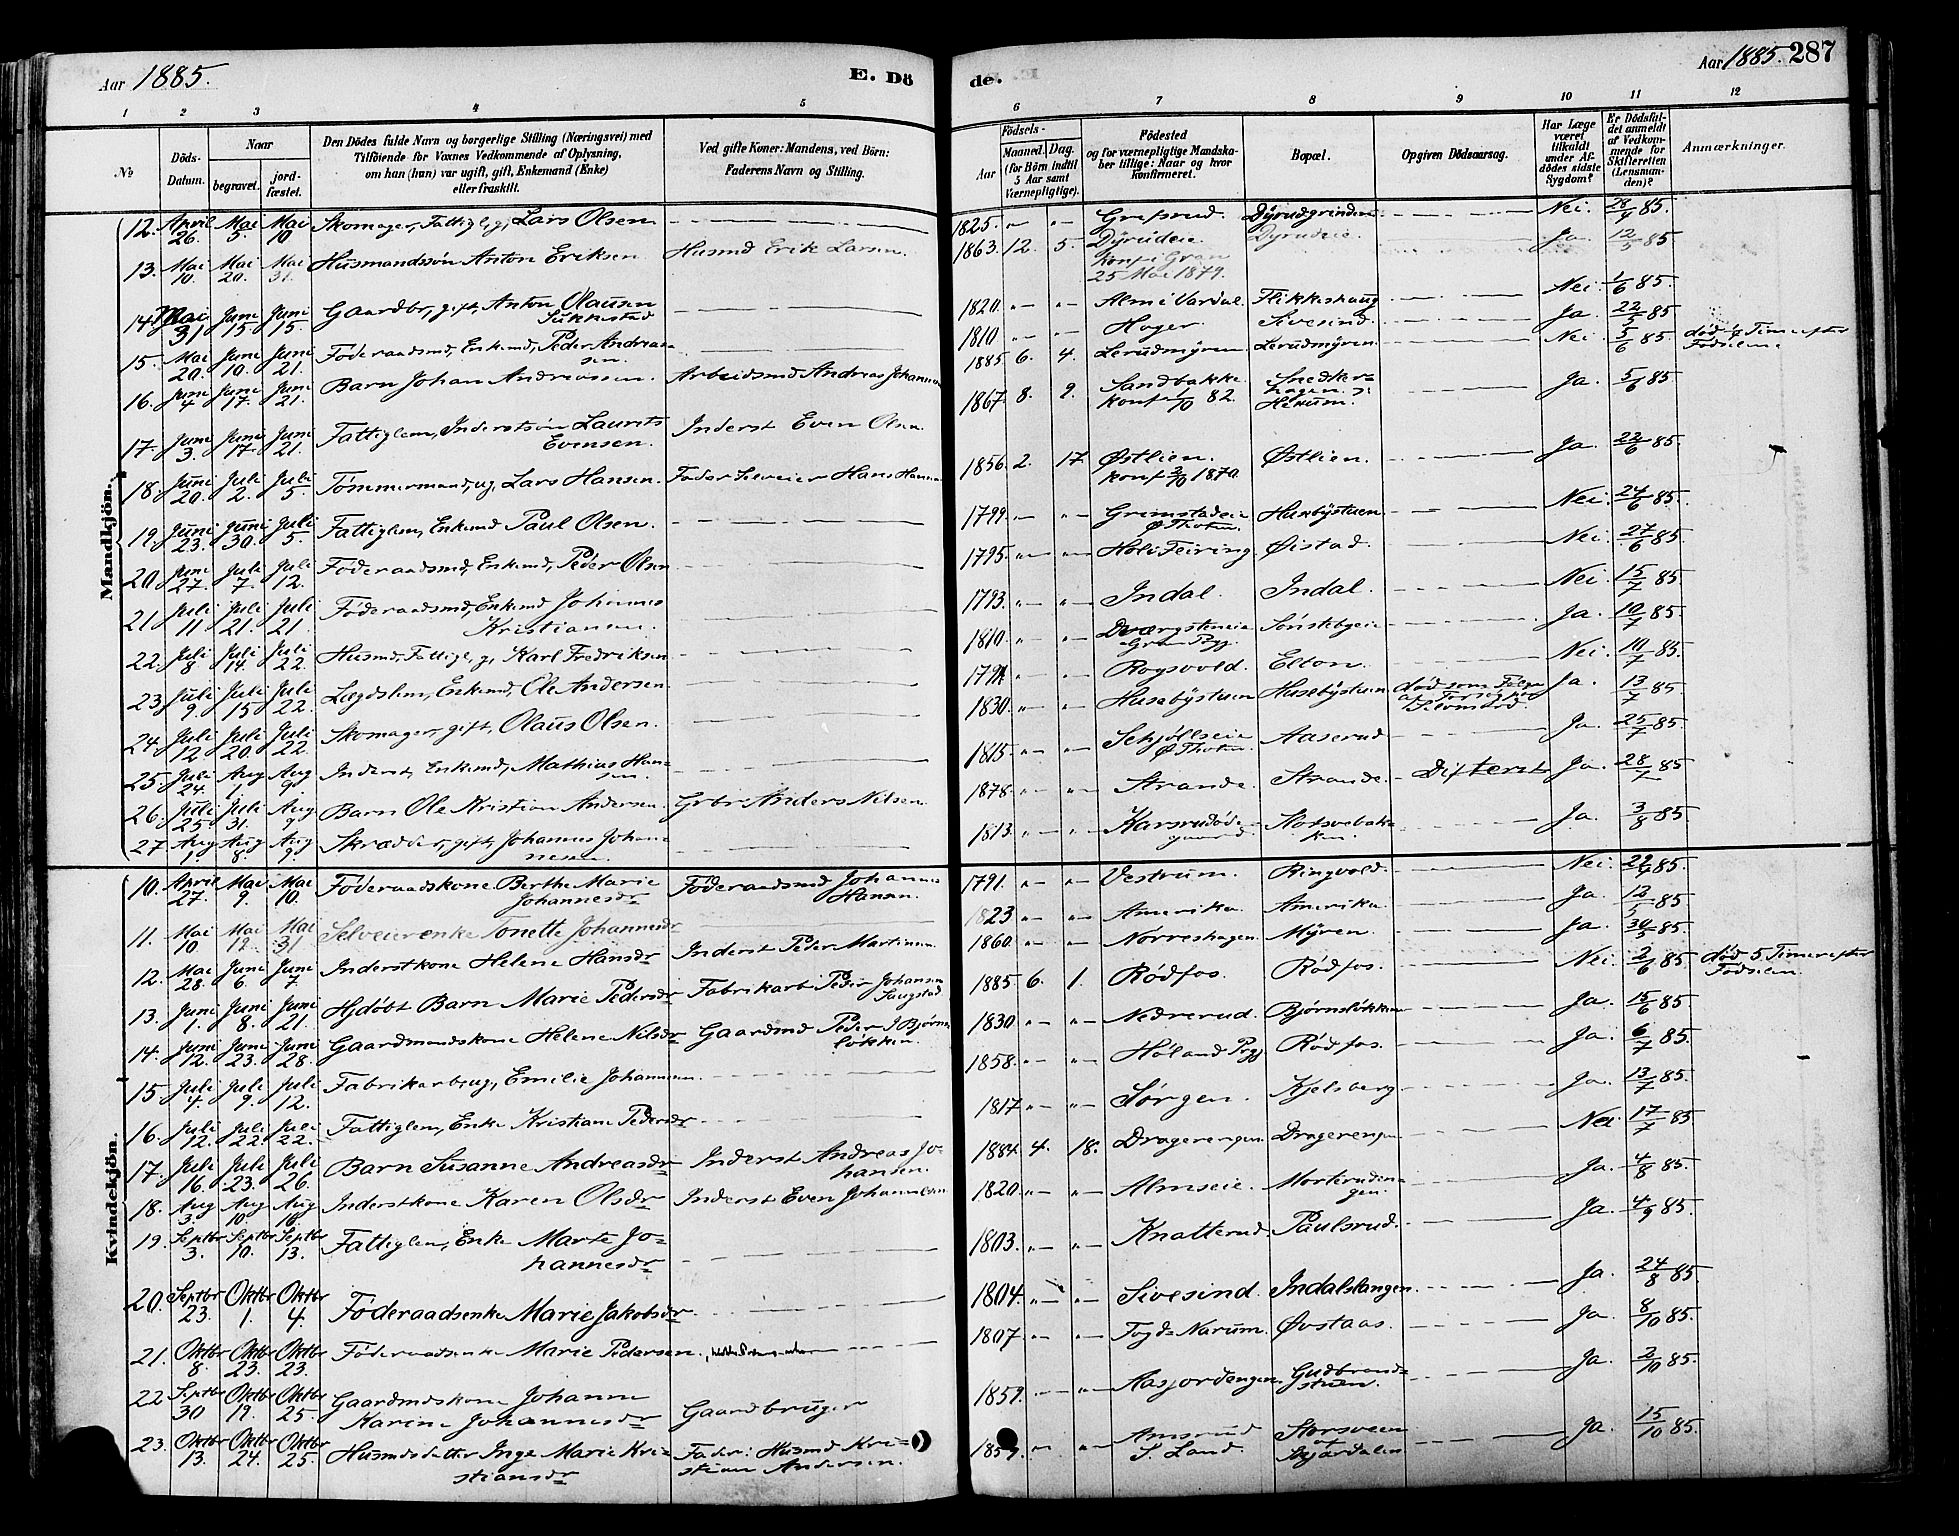 Aar 1885.
E. Dö
de.
Aar 1885. 287
1 2 3 4 5 6 7 8 9 10 11 12
№
Döds-Datum.
Naar
begravet.
jord-fæstet.
Den Dödes fulde Navn og borgerlige Stilling (Næringsvei) med
Tilföiende for Voxnes Vedkommende af Oplysning,
om han (hun) var ugift, gift, Enkemand (Enke)
eller fraskilt.
Ved gifte Koner: Mandens, ved Börn:
Faderens Navn og Stilling.
Födsels-
Aar
Maaned. Dag.
(for Börn indtil
5 Aar samt
Værnepligtige).
Födested
og for værnepligtige Mandska-
ber tillige: Naar og hvor
konfirmeret.
Bopæl.
Opgiven Dödsaarsag.
Har Læge
været
tilkaldt
under Af-
dödes sidste
Sygdom?
Er Dödsfal-
det anmeldt
af Vedkom-
mende for
Skifteretten
(Lensman-
den)?
Anmærkninger.
Mandkjön.
12. April 26. Mai 5. Mai 10 Skomager, Fattigl, g, Lars Olsen 1825. Grefsrud. Dyrudgrinden Nei. 28/4 85.
13. Mai 10. Mai 20. Mai 31. Husmandssön Anton Eriksen Husmd Erik Larsen. 1863. 12. 5. Dyrudeie. Konf i Gran 25 Mai 1879. Dyrudeie. Ja. 12/5 85
14. Mai 31 Juni 15. Juni 15. Gaardbr, gift, Anton Olausen Sukkestad 1820. Alm i Vardal. Flikkeshaug Nei 1/6 85.
15. Mai 20. Juni 10. Juni 21. Föderaadsmd, Enkemd, Peder Andreassen. 1810. Hoger. Sivesind. Ja. 22/5 85
16. Juni 4 Juni 17. Juni 21. Barn Johan Andreassen. Arbeidsmd Andreas Johannes 1885 6. 4. Lerudmyren Lerudmyren. Nei. 5/6 85. död 1/4 Time efter Födselen.
17. Juni 3. Juni 17. Juni 21. Fattiglem, Inderstsön Laurits Evensen. Inderst Even Olsen 1867. 8. 2. Sandbakke. konf 1/10 82. Snedkerhagen Hexum. Ja. 5/6 85
18. Juni 20. Juli 2. Juli 5. Tömmermand, ug, Lars Hansen. Fader Selveier Hans Hansen 1856. 2. 17. Østlien. konf 2/10 1870. Østlien. Ja. 22/6 85
19. Juni 23. Juni 30. Juli 5. Fattiglem, Enkemd Paul Olsen. 1799. Grimstadeie Ø Thoten. Husebystuen Nei. 24/6 85.
20 Juni 27. Juli 7. Juli 12. Föderaadsmd, Enkemd, Peder Olsen 1795. Hol i Feiring. Øistad. Nei. 27/6 85.
21 Juli 11 Juli 21. Juli 21. Föderaadsmd, Enkemd Johannes Kristiansen. 1793. Indal. Indal. Nei. 15/7 85.
22. Juli 8. Juli 14. Juli 22. Husmd, Fattigl, g, Karl Fredriksen 1810. Dværgsteneie Gran Pgj. Sönstebyeie Ja. 10/7 85.
23 Juli 9. Juli 15 Juli 22. Lægdslem, Enkemd, Ole Andersen. Rogsvold. Elton. Nei. 10/7 85.
24. Juli 12 Juli 20. Juli 22. Skomager, gift, Olaus Olsen. 1830. Husebystuen Husebystuen död som Fölge af Forsög paa Selvmord Ja. 13/7 85
25. Juli 24. Aug 1. Aug 9. Inderst, Enkemd, Mathias Hansen. 1815. Schjöllseie Ø Thoten. Aaserud Ja. 25/7 85
26. Juli 25. Juli 31. Aug 9. Barn Ole Kristian Andersen. Grbr Anders Nilsen. 1878. Strande. Strande. Difterit Ja. 28/7 85
27 Aug 1. Aug 8. Aug 9 Skrædder, gift, Johannes Johannesen. 1813. Ja. 3/8 85.
Kvindekjön.
10. April 27. Mai 9. Mai 10. Föderaadskone Berthe Marie Johannesdr Föderaadsmd Johannes Hansen. 1791. Vestrum. Ringvold. Nei. 85.
11. Mai 10 Mai 12. Mai 31 Selveierenke Tonette Johannesdr 1823 Amerika. Amerika. Ja. 12/5 85
12. Mai 28. Juni 6. Juni 7 Inderstkone Helene Hansdr Inderst Peder Martinsen 1860. Nörreshagen. Myren. Ja. 30/5 85.
13. Juni 1. Juni 8. Juni 21. Hjdöbt Barn Marie Pedersdr Fabrikarb Peder Johansen Saugstad 1885. 6. 1. Rödfos. Rödfos. Nei. 2/6 85 död 5 Timer efter Födselen
14. Juni 12. Juni 23. Juni 28. Gaardmandskone Helene Nilsdr Gaardmd Peder J Bjørnslökken. 1830 Nedrerud. Björnslökken Ja. 15/6 85
15 Juli 4. Juli 9. Juli 12. Fabrikarb, ug, Emilie Johannesen. 1858. Höland Pgj Rödfos. Ja. 6/7 85.
16. Juli 12. Juli 22. Juli 22. Fattiglem, Enke Kristiane Pedersdr 1817 Sörgen. Kjelsberg Ja. 13/7 85.
17. Juli 16. Juli 23. Juli 26. Barn Susanne Andreasdr Inderst Andreas Johansen. 1884. 4. 18. Dragerengen. Dragerengen Nei 17/7 85
18. Aug 3. Aug 10. Aug 16. Inderstkone Karen Olsdr Inderst Even Johannesen 1820. Almseie. Morterudengen. Ja. 4/8 85.
19. Septbr 3. Septbr 10. Septbr 13. Fattiglem, Enke Marte Johannesdr 1803. Knatterud. Paulsrud. Ja. 4/9 85.
20. Septbr 23. Oktbr 1. Oktbr 4. Föderaadsenke Marie Jakobsdr 1804. Sivesind. Indalstangen. Ja. 24/8 85
21. Oktbr 8. Oktbr 23. Oktbr 23. Föderaadsenke Marie Pedersen. 1807. Narum. Øvstaas. Ja. 8/10 85.
22 Septbr 30 Oktbr 19. Oktbr 25. Gaardmdskone Johanne Karine Johannesdr Gaardbruger 1859. Aasjordengen. Gudbrandstuen. Ja. 2/10 85.
23. Oktbr 13. Oktbr 24. Oktbr 25. Husmdsdatter Inge Marie Kristiansdr Fader: Husmd Kristian Andersen. Amsrud S. Land. Storsveen af Ja. 15/10 85.